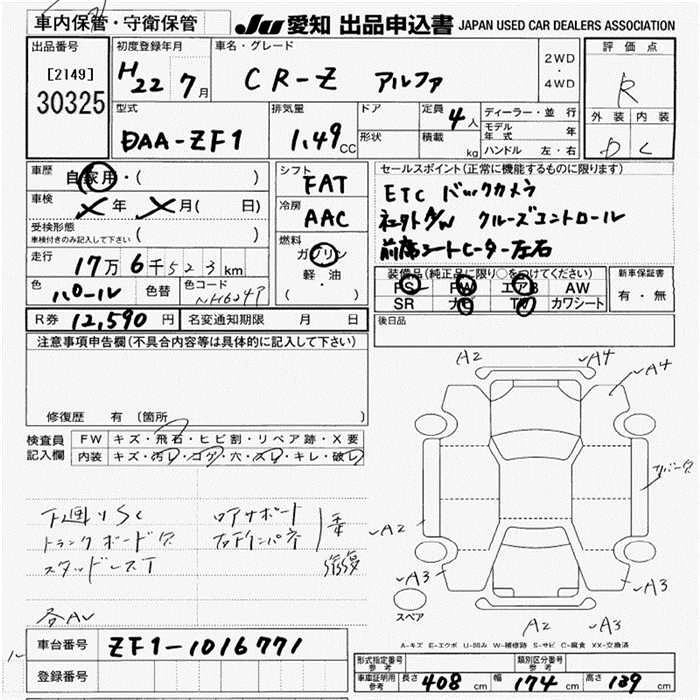 車内保管・守衛保管
JU 愛知 出品申込書 JAPAN USED CAR DEALERS ASSOCIATION
出品番号
[2149]
30325
初度登録年月
H22 7月
車名・グレード
CR-Z アルファ
2WD
・
4WD
評価点
R
外装 内装
D C
型式
DAA-ZF1
排気量
1.49 CC
ドア
形状
定員 4人
積載 kg
ディーラー・並行
モデル年式 年
ハンドル 左・右
車歴
自家用・( )
車検
年 月( 日)
受検形態
車検付きのみ記入して下さい ( )
走行
17万6千523km
色
パール
色替
色コード
NH624P
シフト
FAT
冷房
AAC
燃料
ガソリン
軽・油
( )
セールスポイント(正常に機能するものに限ります)
ETC バックカメラ
クルーズコントロール
前席シートヒーター左右
装備品(純正品に限り○をつけてください)
PS PW エアB AW
SR ナビ TV カワシート
新車保証書
有・無
R券 12,590円
名変通知期限 月 日
後日品
注意事項申告欄(不具合内容等は具体的に記入して下さい)
修復歴 有 〔箇所 〕
検査員
記入欄
FW キズ・飛石・ヒビ割・リペア跡・X要
内装 キズ・汚レ・コゲ・穴・スレ・キレ・破レ
下廻りSC
トランクボードキズ
スタッドレスT
各AU
ロアサポート
右下インパネ
歪
A2
A4
A4
A2
A3
A3
A2
A3
スペア
A-キズ E-エクボ U-凹み W-補修跡 S-サビ C-腐食 XX-交換済
車台番号 ZF1-1016771
登録番号
形式指定番号
参考
類別区分番号
参考
車庫証明用
参考
長さ 408 cm 幅 174 cm 高さ 139 cm